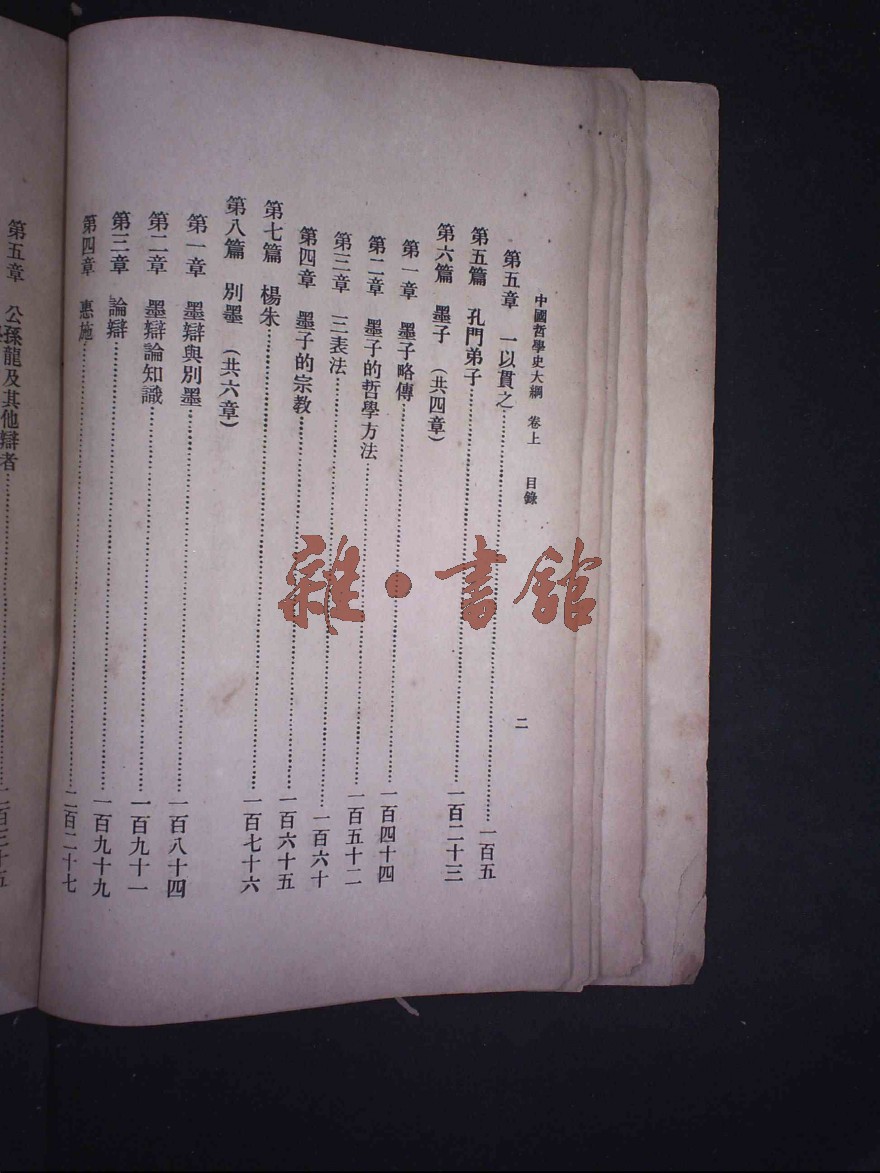 中國哲學史大綱 卷上 目錄 二
第五章 一以貫之……一百五
第五篇 孔門弟子……一百二十三
第六篇 墨子 (共四章)
第一章 墨子略傳……一百四十四
第二章 墨子的哲學方法……一百五十二
第三章 三表法……一百六十
第四章 墨子的宗教……一百六十五
第七篇 楊朱……一百七十六
第八篇 別墨 (共六章)
第一章 墨辯與別墨……一百八十四
第二章 墨辯論知識……一百九十一
第三章 論辯……一百九十九
第四章 惠施……二百二十七
第五章 公孫龍及其他辯者……二百三十五
雜・書館